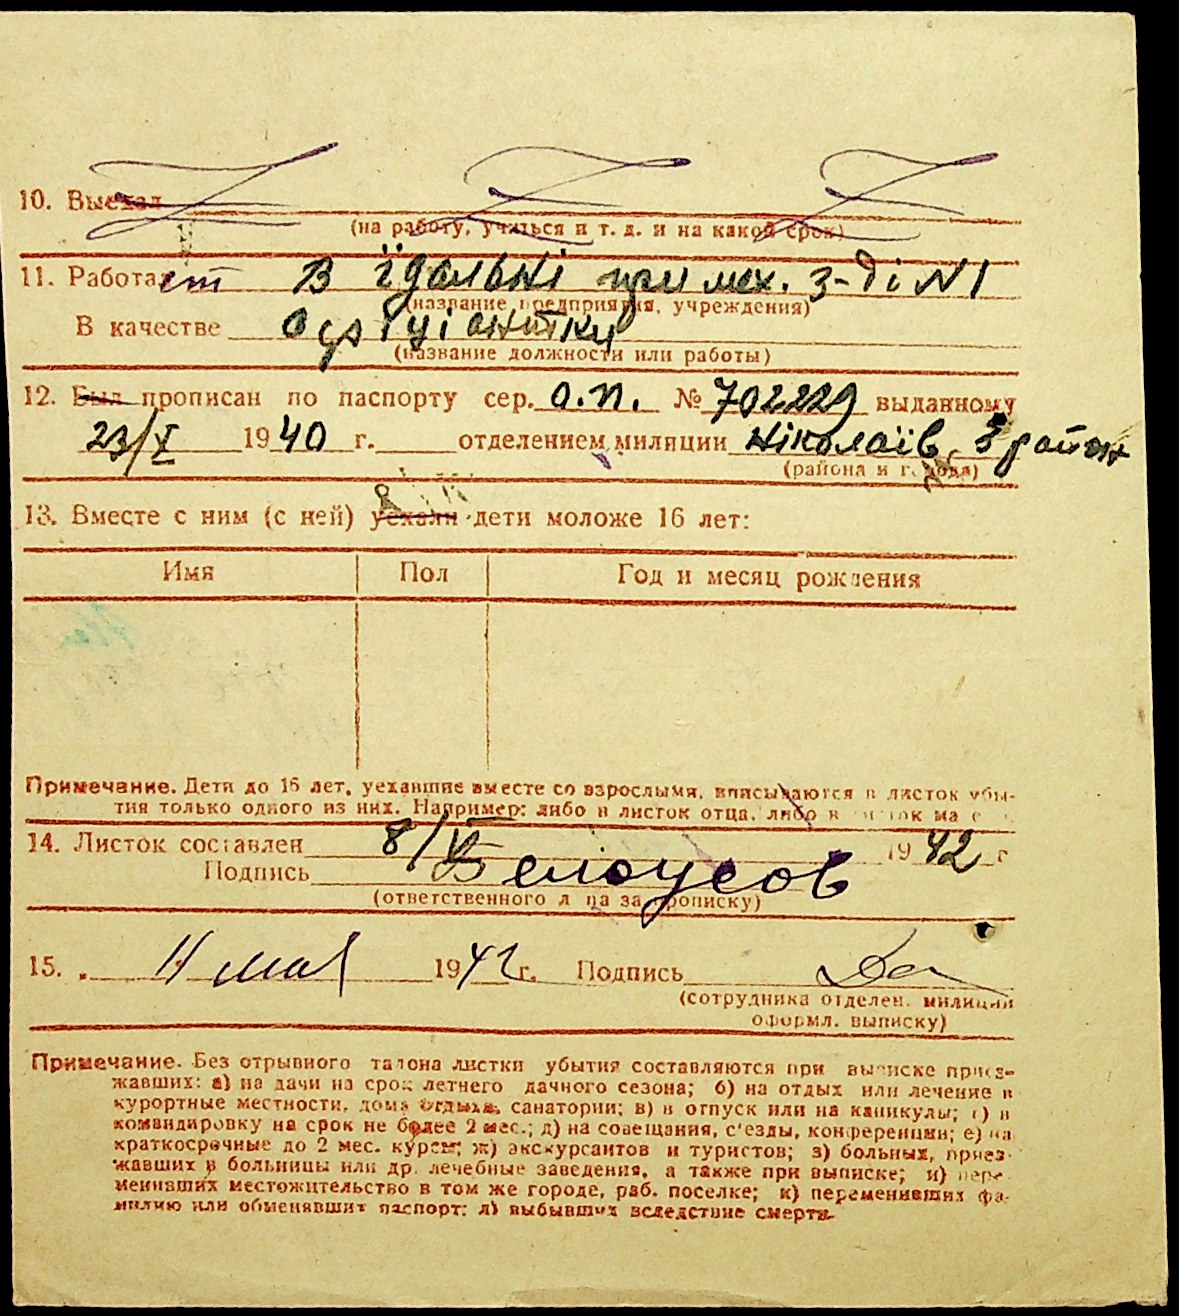 10. Выехал
(на работу, учиться и т. д. и на какой срок)
11. Работает в їдальні при мех. з-ді N 1
(название предприятия, учреждения)
В качестве
(название должности или работы)
12. Был прописан по паспорту сер. О.П. № 702229 выданному
23/X 1940 г. отделением милиции Ніколаїв, 3 район
(района и города)
13. Вместе с ним (с ней) уехали дети моложе 16 лет:
Имя Пол Год и месяц рождения
Примечание. Дети до 16 лет, уехавшие вместе со взрослыми, вписываются в листок убы-
тия только одного из них. Например: либо в листок отца, либо в листок
14. Листок составлен 8/V 1942 г
Подпись Белоусов
(ответственного лица за прописку)
15. 11 мая 1942 г. Подпись
(сотрудника отделен. милиции
оформл. выписку)
Примечание. Без отрывного талона листки убытия составляются при выписке приез-
жавших: а) на дачи на срок летнего дачного сезона; б) на отдых или лечение в
курортные местности, дома отдыха, санатории; в) в отпуск или на каникулы; г) в
командировку на срок не более 2 мес.; д) на совещания, с'езды, конференции; е) на
краткосрочные до 2 мес. курсы; ж) экскурсантов и туристов; з) больных, приез-
жавших в больницы или др. лечебные заведения, а также при выписке; и) пере-
менивших местожительство в том же городе, раб. поселке; к) переменивших фа-
милию или обменявших паспорт; л) выбывших вследствие смерти.